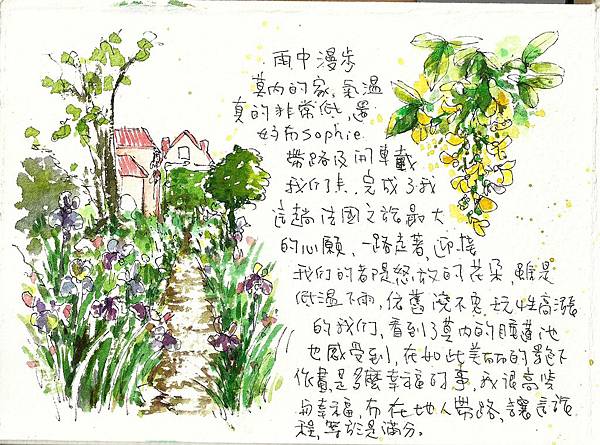 雨中漫步
莫內的家,氣溫
真的非常低,還
好有sophie
帶路及開車載
我們去.完成了我
這趟法國之旅最大
的心願,一路走著,迎接
我們的都是怒放的花朵,雖是
低溫下雨,依舊澆不息玩性高漲
的我們,看到了莫內的睡蓮池
也感受到,在如此美麗的景下
作畫是多麼幸福的事,我很高興
與幸福,有在地人帶路,讓這旅
程,等於是滿分.